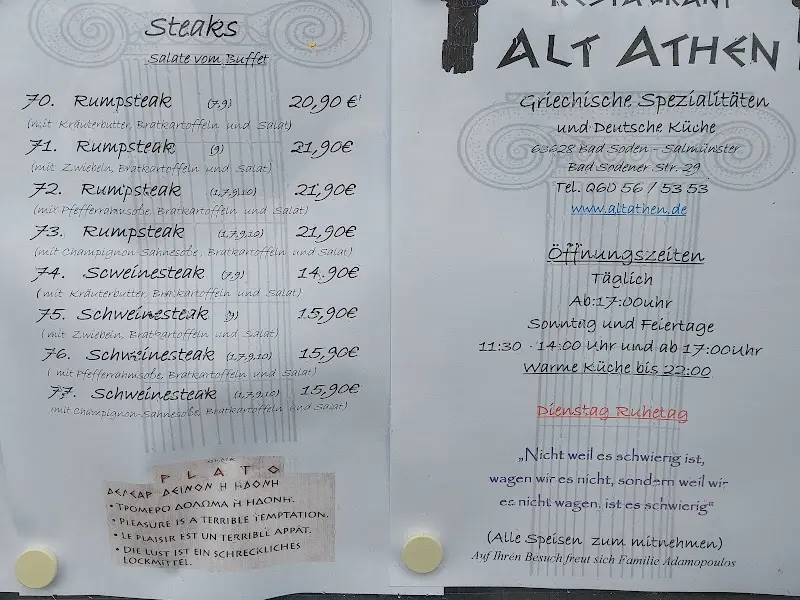 Steaks
Salate vom Buffet
70. Rumpsteak (7,9) 20,90 €
(mit Kräuterbutter, Bratkartoffeln und Salat)
71. Rumpsteak (9) 21,90€
(mit Zwiebeln, Bratkartoffeln und Salat)
72. Rumpsteak (1,7,9,10) 21,90€
(mit Pfefferrahmsoße, Bratkartoffeln und Salat)
73. Rumpsteak (1,7,9,10) 21,90€
(mit Champignon-Sahnesoße, Bratkartoffeln und Salat)
74. Scweinesteak (7,9) 14,90€
(mit Kräuterbutter, Bratkartoffeln und Salat)
75. Schweinesteak (9) 15,90€
(mit Zwiebeln, Bratkartoffeln und Salat)
76. Schweinesteak (1,7,9,10) 15,90€
(mit Pfefferrahmsoße, Bratkartoffeln und Salat)
77. Schweinesteak (1,7,9,10) 15,90€
(mit Champignon-Sahnesoße, Bratkartoffeln und Salat)
PLATO
ΔΕΛΕΑΡ ΔΕΙΝΟΝ Η ΗΔΟΝΗ
• ΤΡΟΜΕΡΟ ΔΟΛΩΜΑ Η ΗΔΟΝΗ.
• PLEASURE IS A TERRIBLE TEMPTATION.
• LE PLAISIR EST UN TERRIBLE APPÂT.
• DIE LUST IST EIN SCHRECKLICHES
LOCKMITTEL.
RESTAURANT
ALT ATHEN
Griechische Spezialitäten
und Deutsche Küche
63628 Bad Soden - Salmünster
Bad Sodener Str. 29
Tel. 060 56 / 53 53
www.altathen.de
Öffnungszeiten
Täglich
Ab:17:00uhr
Sonntag und Feiertage
11:30 - 14:00 Uhr und ab 17:00Uhr
Warme Küche bis 22:00
Dienstag Ruhetag
„Nicht weil es schwierig ist,
wagen wir es nicht, sondern weil wir
es nicht wagen, ist es schwierig“
(Alle Speisen zum mitnehmen)
Auf Ihren Besuch freut sich Familie Adamopoulos